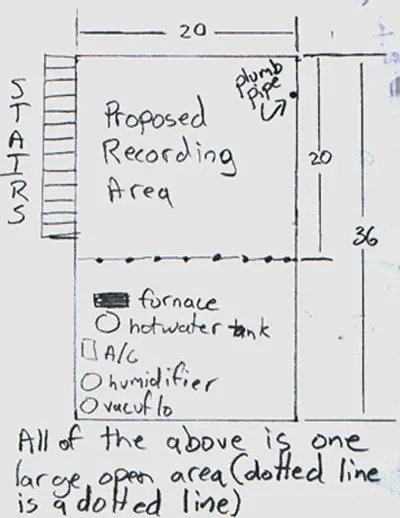 20
plumb
pipe
STAIRS
Proposed
Recording
Area
20
36
furnace
hotwater tank
A/C
humidifier
vacuflo
All of the above is one
large open area (dotted line
is a dotted line)